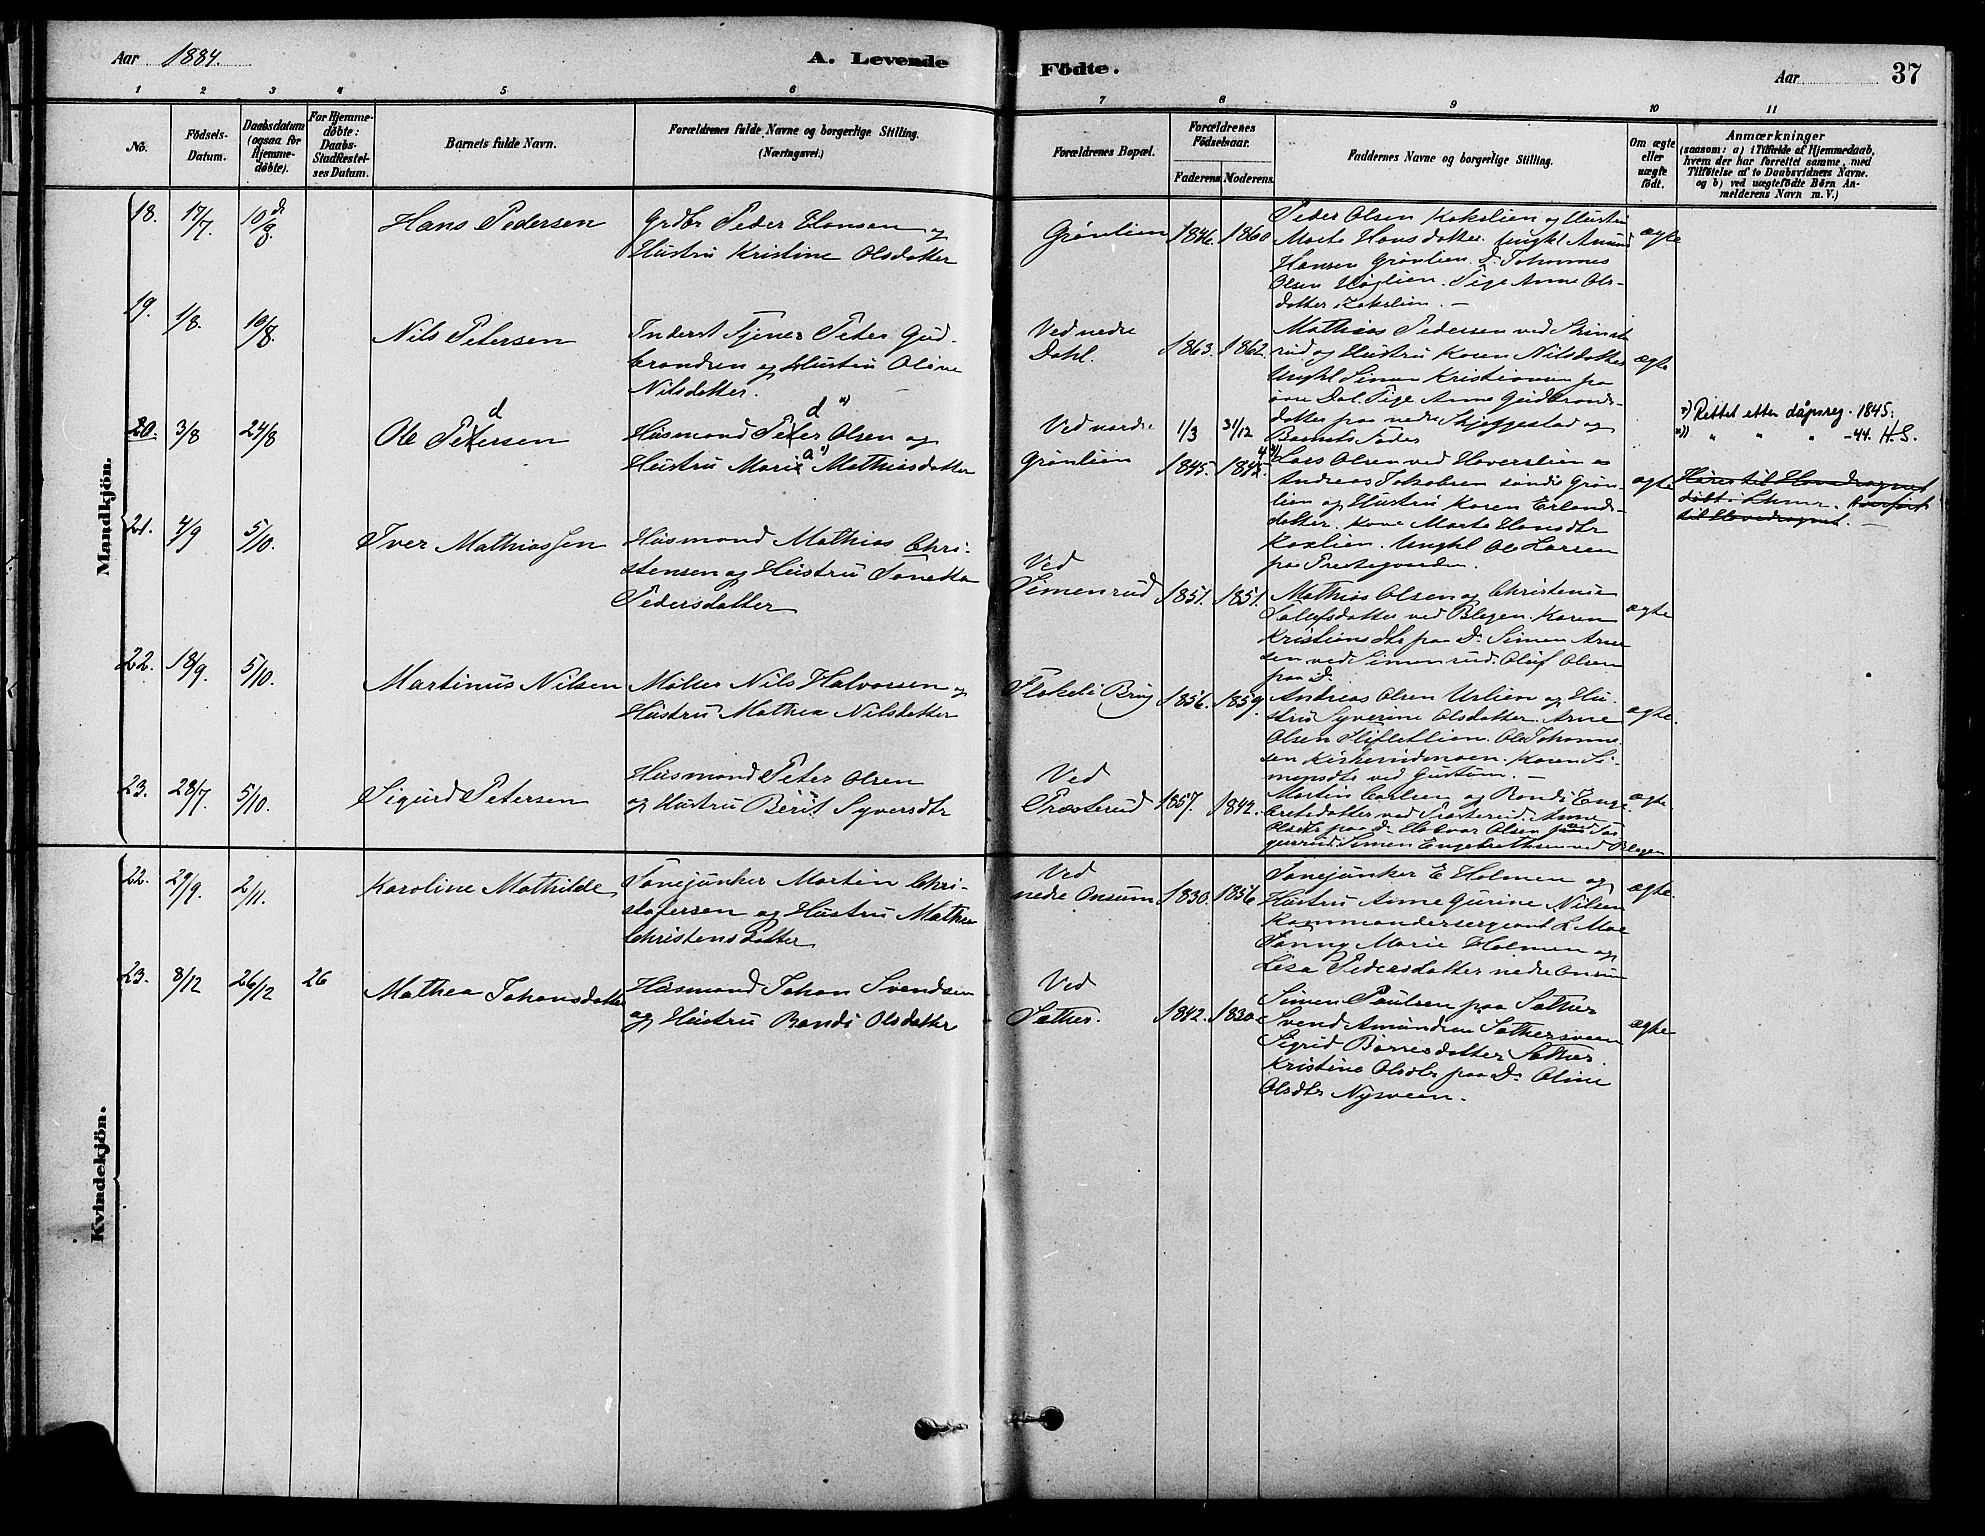 Aar 1884.
A. Levende
Fødte.
Aar
37
1 2 3 4 5 6 7 8 9 10 11
No.
Fødsels-
Datum.
Daabsdatum
(ogsaa for
Hjemme-
døbte).
For Hjemme-
døbte:
Daabs-
Stadfæstel-
ses Datum.
Barnets fulde Navn.
Forældrenes fulde Navne og borgerlige Stilling.
(Næringsvei.)
Forældrenes Bopæl.
Forældrenes
Fødselsaar.
Faderens Moderens.
Faddernes Navne og borgerlige Stilling.
Om ægte
eller
uægte
født.
Anmærkninger
(saasom: a) i Tilfælde af Hjemmedaab,
hvem der har forrettet samme, med
Tilføielse af to Daabsvidners Navne.
og b) ved uægtefødte Børn An-
melderens Navn m. V.)
Mandkjön.
18. 17/7. 10/8. Hans Pedersen
Grdbr Peder Hansen og
Hustru Kristine Olsdatter
Grønlien 1846. 1860
Peder Olsen Kokslien og Hustru
Marte Hansdatter. Ungkl Amund
Hansen Grønlien. D. Johannes
Olsen Høglien. Pige Anne Ols-
datter Kokslien. —
ægte
19. 1/8. 10/8. Nils Petersen
Inderst Tjener Peter Gud-
brandsen og Hustru Oline
Nilsdatter.
Ved nedre
Dahl. 1863. 1862.
Mathias Pedersen ved Skinst
rud og Hustru Karen Nilsdatter
Ungkl Simen Kristiansen paa
øvre Dal. Pige Anne Gudbrands-
datter paa nedre Skjeggestad og
Barnets Fader
ægte
20. 3/8 24/8 Ole Petersen
d
Husmand Peter Olsen og
d *)
Hustru Marie Mathiasdatter
a *)
Ved nordre
Grønlien
1/3 31/12
1845. 1845
4 *)
Lars Olsen ved Haverslien og
Andreas Jakobsen søndre Grøn-
lien og Hustru Karen Erlands-
datter. Kone Marte Hansdtr
Koxlien. Ungkl Ole Larsen
paa Prestegaarden.
ægte
*) Rettet etter dåpsreg. 1845.
*)) " " " -44. H.S.
Hører til Hovedsognet
døbt i
til Hovedsognet. —
21. 4/9 5/10. Iver Mathiassen
Husmand Mathias Chri-
stensen og Hustru Tonetta
Pedersdatter
Ved
Simenrud 1851. 1851.
Mathias Olsen og Christense
ved Blegen. Karen
Kristiansdtr paa D. Simen Arne
sen ved Simenrud. Oluf Olsen
paa D.
ægte
22. 18/9. 5/10. Martinus Nilsen
Møller Nils Halvorsen og
Hustru Mathea Nilsdatter
Brug 1856. 1859.
Andreas Olsen Urlien og Hu-
stru Syverine Olsdatter. Arne
Olsen . Ole Johanne
sen . Karen Si-
mensdtr ved Gustum. —
ægte.
23. 28/7. 5/10. Sigurd Petersen
Husmand Peter Olsen
og Hustru Berit Syversdtr
Ved
Præsterud 1857. 1842.
Martin Carlsen og Randi Enge
bretsdatter ved Præsterud. Anne
Olsdtr paa D. Halvor Olsen ved
Simen Engebrethsen ved Blegen
ægte
Kvindekjön.
22. 29/9. 2/11. Karoline Mathilde
Fanejunker Martin Chri-
stofersen og Hustru Mathea
Christensdatter
Ved
nedre Onsum 1830. 1856
Fanejunker E Holmen og
Hustru Anne Gurine Nilsen
Kommandersergeant L Moe
Fanny Marie Holmen og
Lisa Pedersdatter nedre Onsum
ægte.
23. 8/12 26/12 26 Mathea Johansdatter
Husmand Johan Svendsen
og Hustru Randi Olsdatter
Ved
Sæther. 1842. 1830
Simen Paulsen paa Sæther
Svend Amundsen Sæthersveen
Sigrid Børresdatter Sæther
Kristine Olsdtr paa D. Oline
Olsdtr Nysveen.
ægte